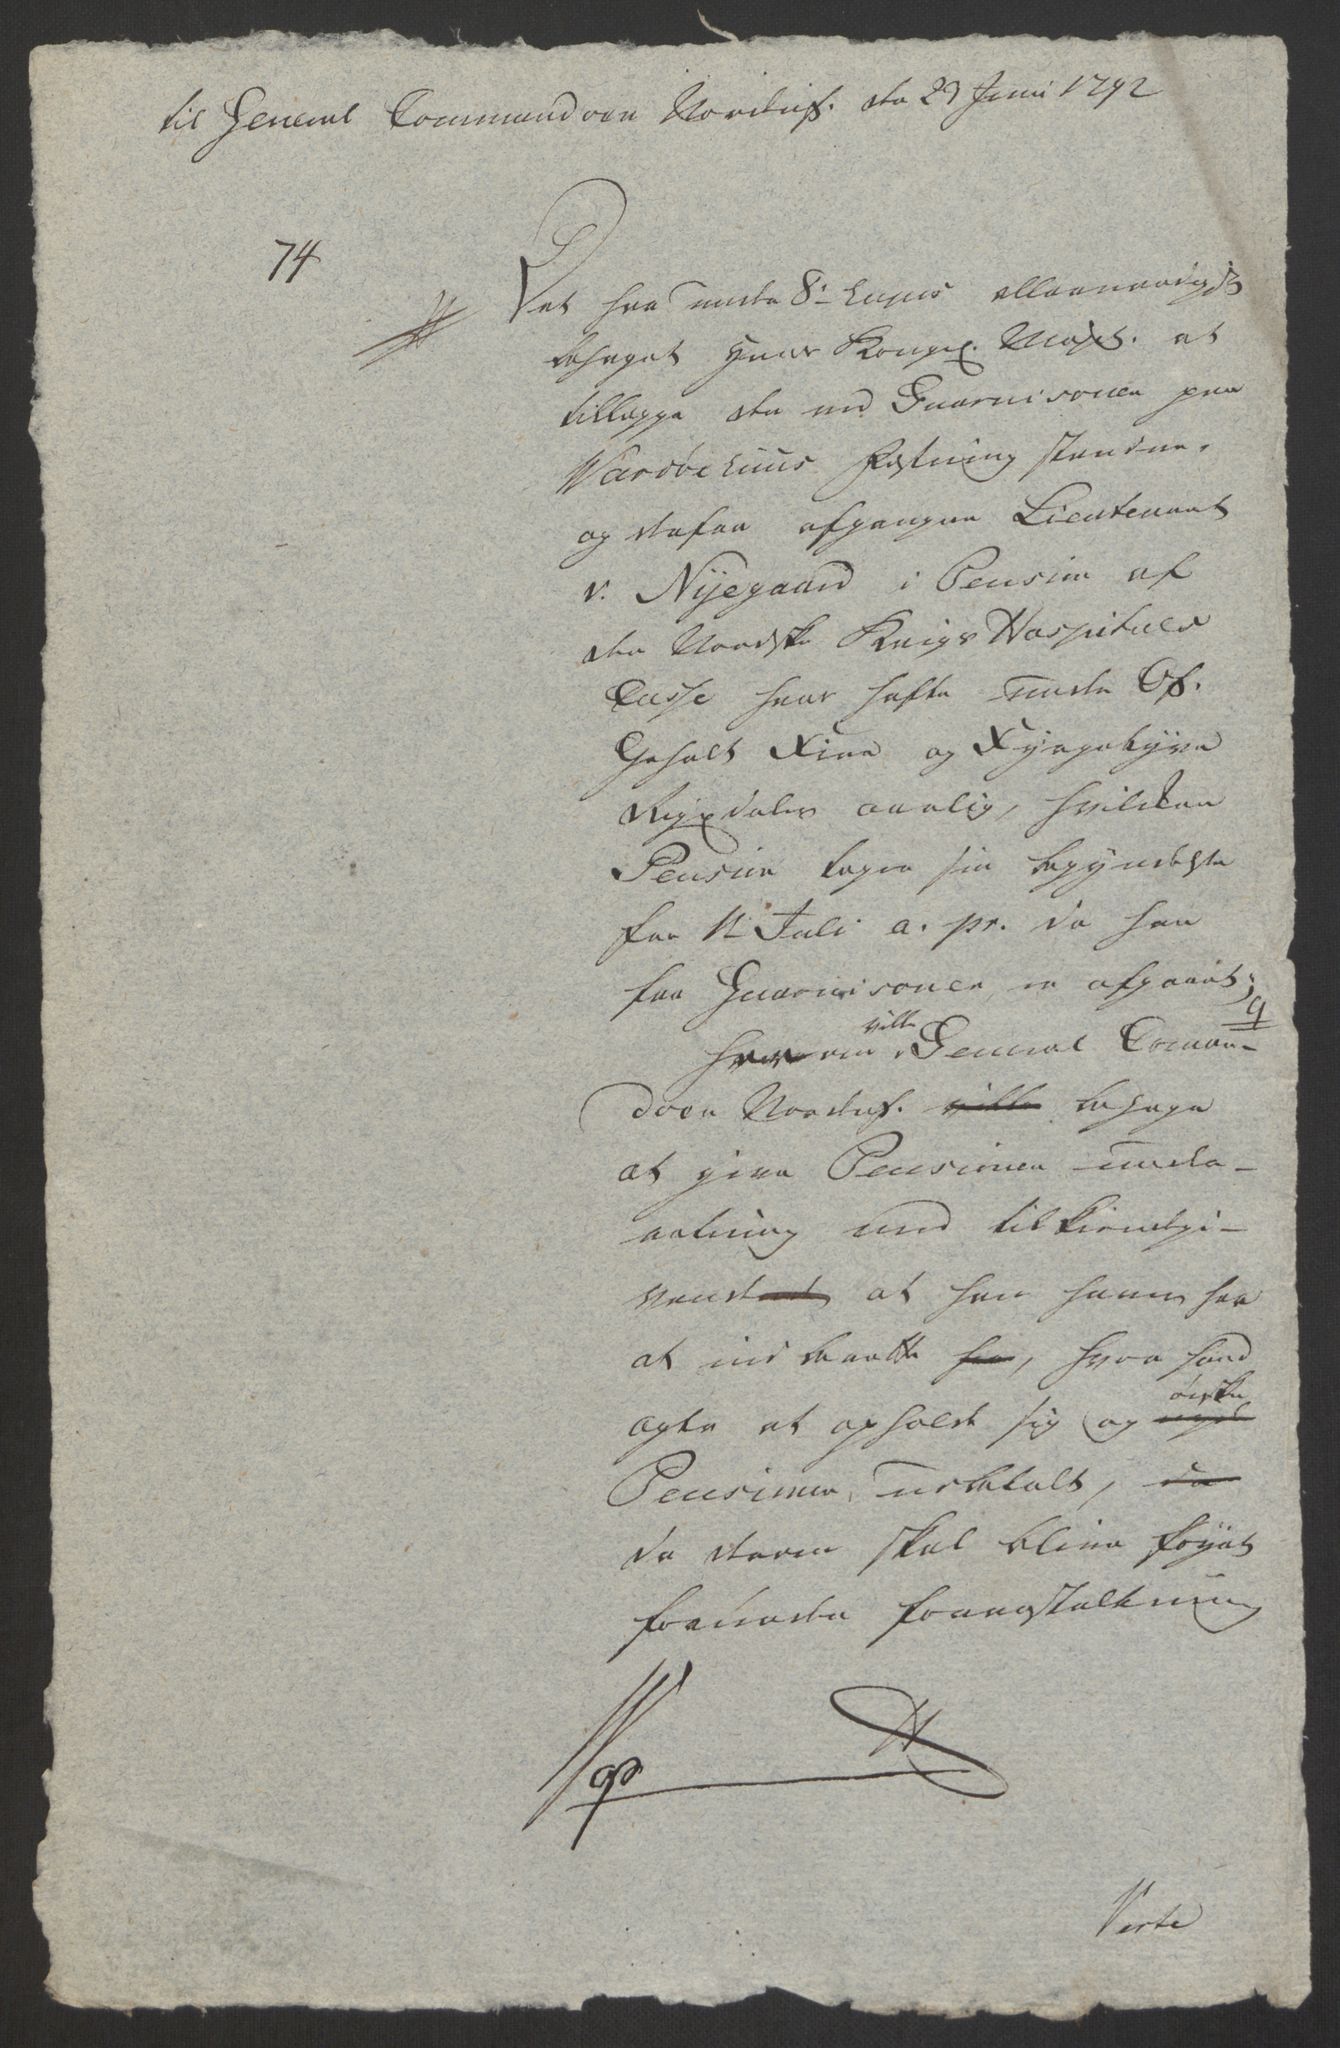 til General Commandoen Nordenf. den 23 Junii 1792
74
Det har under 8de hujus allernaadigst
behaget Hans Kongel. Mayst. at
tillægge den ved Guarnisonen paa
Wardøehuus Fæstning staaende,
og derfra afgangne Lieutenant
v. Nyegaard i Pension af
den Norske Krigs Hospitals
Casse hans hafte under Of.
Gehalt Fire og Fyrgetyve
Rigsdaler aarlig, hvilken
Pension tager sin begyndelse
fra 1te Juli a. pr. da han
fra Guarnisonen er afgaaet;
ville
hvorom General Comman-
doen Nordenf. ville behage
at give Pensionen under-
retning med tilkiendegi-
vende at han haver
at indberette hvor hand
agter at opholde sig og
ønske
Pensionen udbetalt, da
da derom skal blive føyet
fornøden foranstaltning
Verte